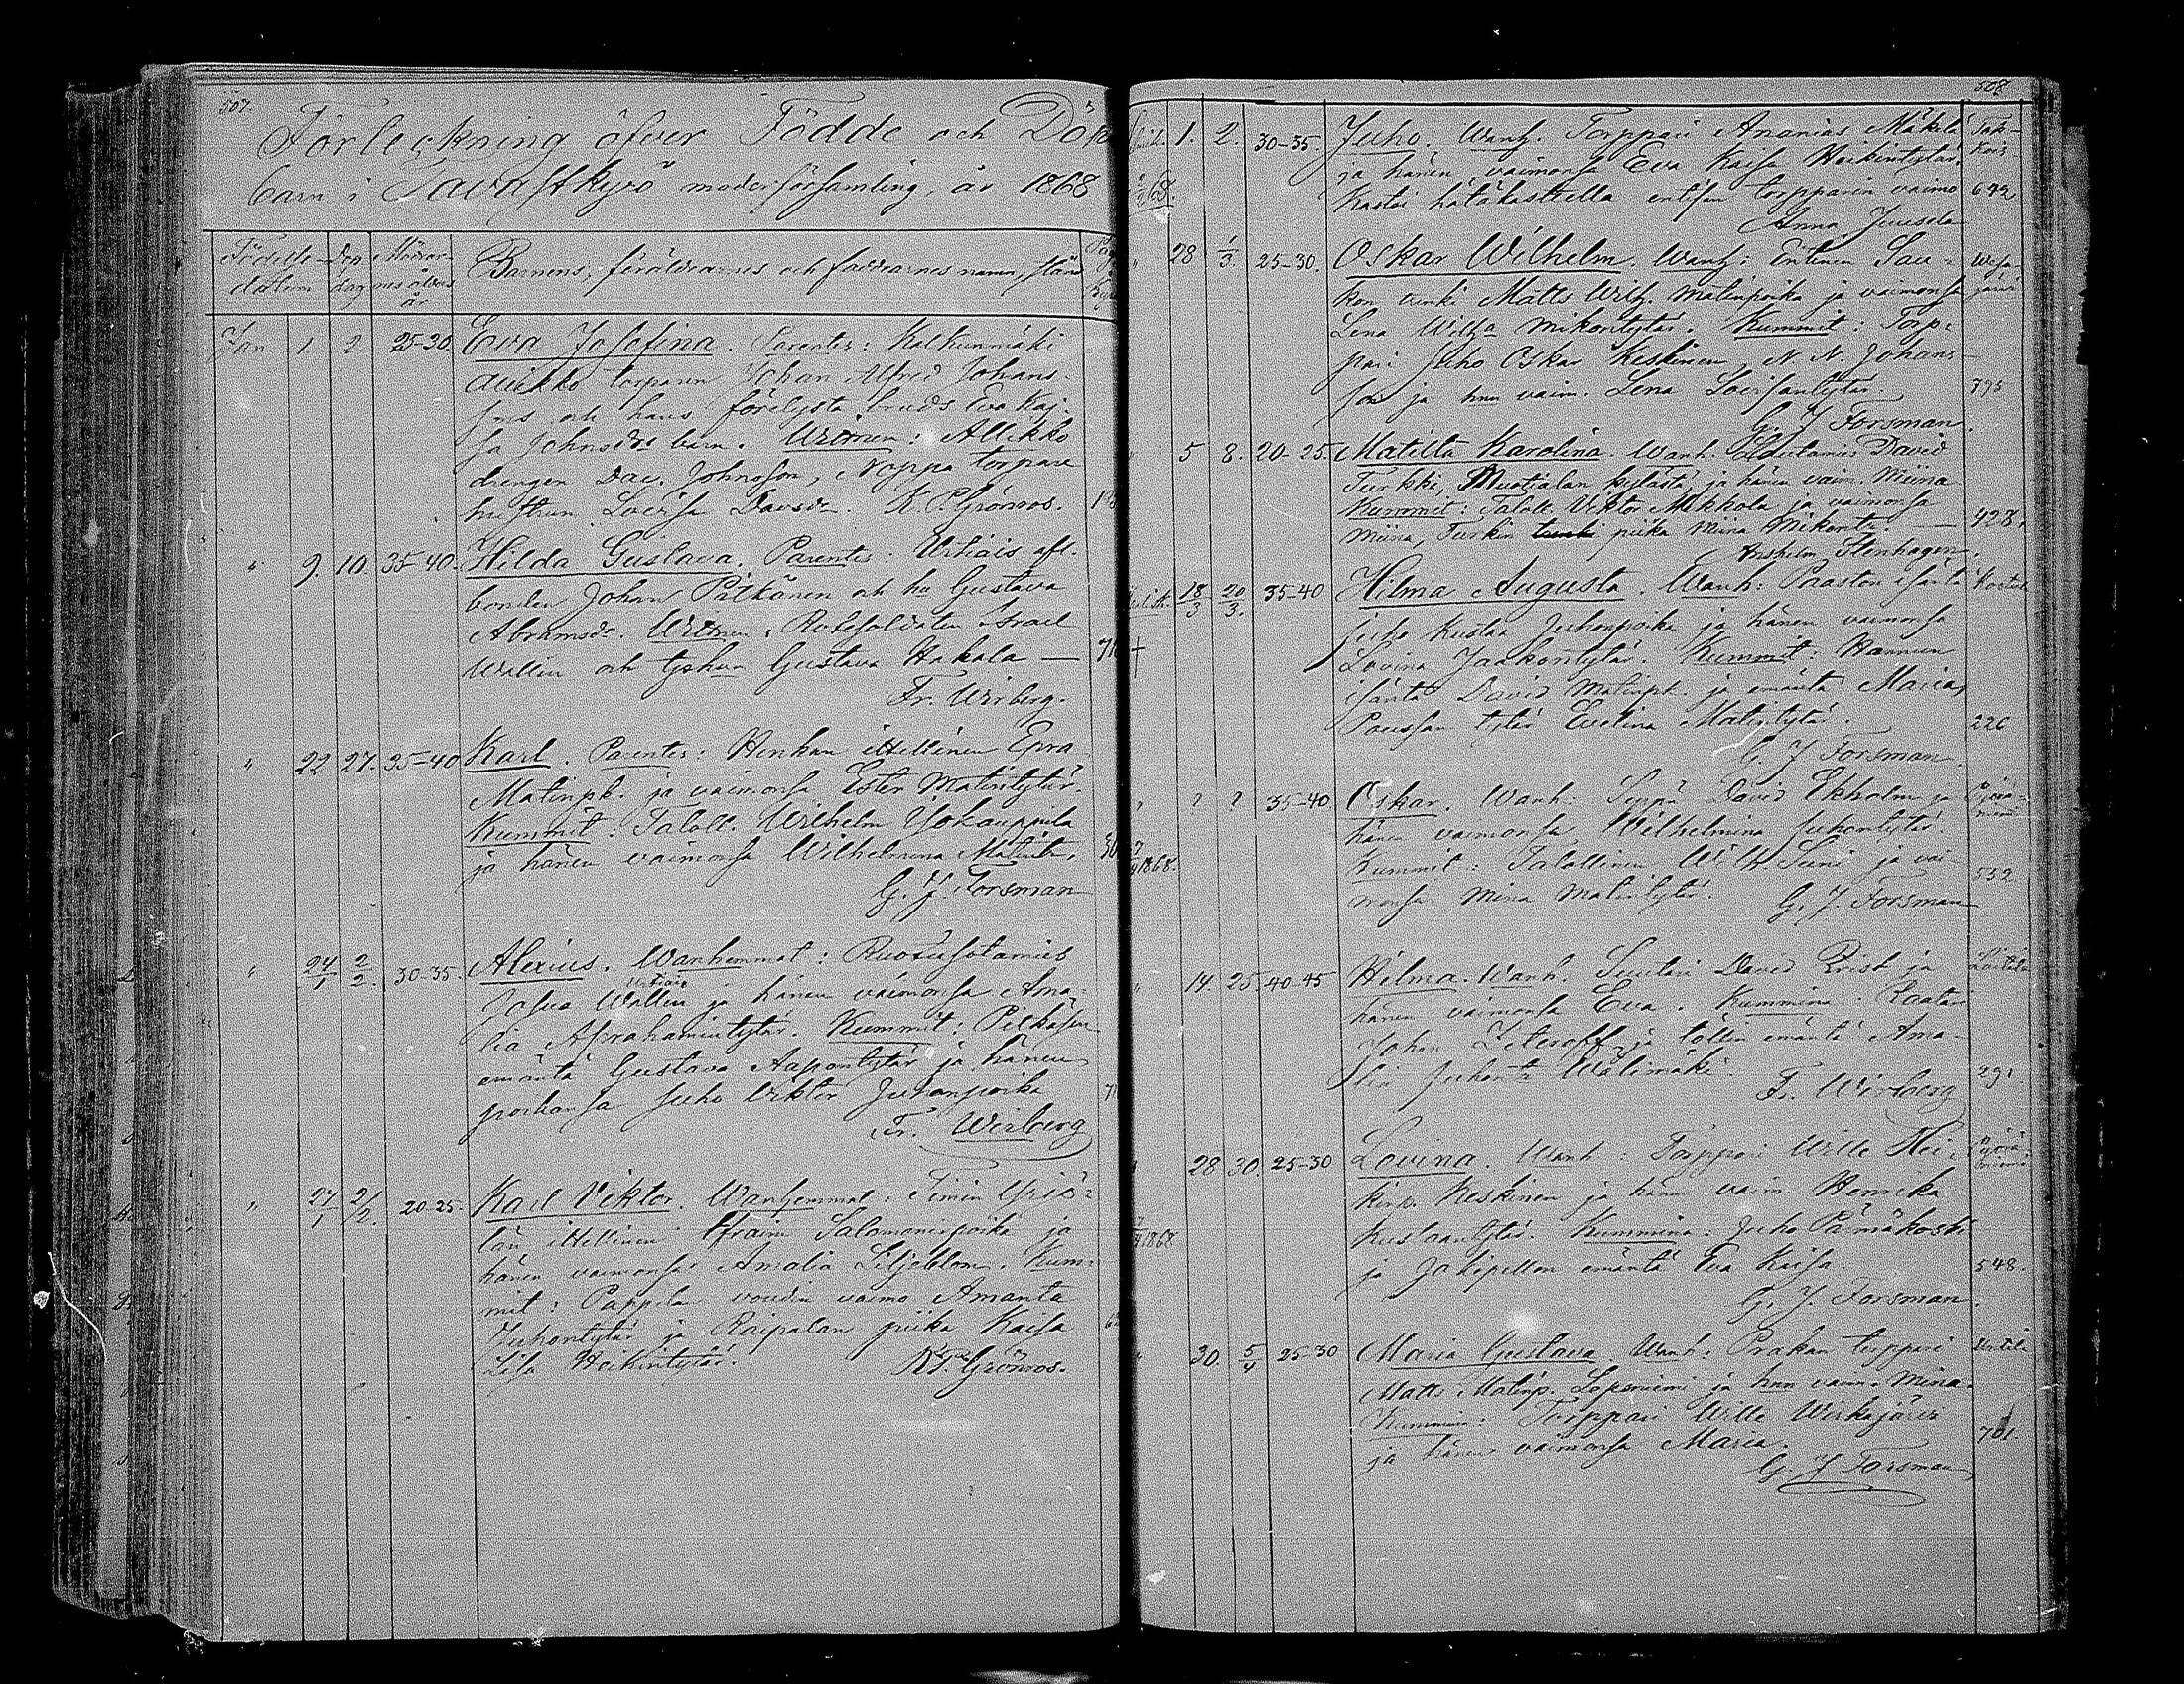 507.
Förteckning öfver Födde och Döp
barn i Tavastkyrö moderförsamling, år 1868
Födelse- Dop Mödrar-
datum dag nes ålder
år
Barnens, föräldrarnes och faddrarnes namn, stånd
Jan. 1 2. 25-30. Eva Josefina. Parentes: Kalkunmäki
torparen Johan Alfred Johans-
sons och hans förelysta bruds Eva Kaj-
sa Johnsdrs barn. Witnen: Allikko
drengen Dav. Johnsson, Noppa torpare
hustrun Lovisa Davsdr. K. P. Grönroos.
" 9. 10. 35-40. Hilda Gustava. Parentes: Urhiais
bonden Johan Pätkänen och hu Gustava
Abramsdr. Witnen: Rotesoldaten Israel
Wallin och Gustava Hakala —
Fr. Wirberg.
" 22 27. 35-40 Karl. Parentes: Henkan itellinen
Matinpk. ja vaimonsa Ester Matintytär.
Kummit: Taloll. Wilhelm Yjokauppila
ja hänen vaimonsa Wilhelmina Matint.
G. J. Forsman
" 24/1 2/2. 30-35. Alexius. Wanhemmat: Ruotusotamies
Josua Wallin ja hänen vaimonsa Ama-
lia Aprahamintytär. Kummit:
emäntä Gustava Aapontytär ja hänen
poikansa Juho Viktor Juhanpoika
Fr. Wirberg
" 27/1 2/2. 20-25. Karl Viktor. Wanhemmat: Timin Yriö-
län itellinen Efraim Salomoninpoika ja
hänen vaimonsa Amalia Liljeblom. Kum-
mit: Pappilan voudin vaimo Amanta
Juhontytär ja Raipalan piika Kaisa
Lisa Heikintytär. K. P. Grönroos.
508
1. 2. 30-35. Juho. Wanh. Torppari Ananias Mäkelä
ja hänen vaimonsa Eva Kaisa Heikintytär.
Kastoi hätäkasteella entisen torpparin vaimo 672
Anna Juusela
" 28 1/3. 25-30. Oskar Wilhelm. Wanh: Entinen Sau-
kon renki Matts Wilh. Matinpoika ja vaimonsa
Lena Wilha Mikontytär. Kummit: Torp-
pari Juho Oskar Keskinen, N. N. Johans-
son ja hnn vaim. Lena Loviisantytär. 795
G. J. Forsman.
" 5 8. 20-25. Matilta Karolina. Wanh. David
Turkki, Muotialan kylästä, ja hänen vaim. Miina
Kummit: Taloll. Viktor Mikkola ja vaimonsa
Miina, Turkin piika Miina Mikontr. — 428.
Anshelm Stenhagen.
18/3 20/3. 35-40 Hilma Augusta. Wanh: Paaston isäntä
Juho Kustaa Juhonpoika ja hänen vaimonsa
Lovina Jaakontytär. Kummit: Hannun
isäntä David Matinpk ja emäntä Maria,
tytär Evelina Matintytär. 226
G. J. Forsman.
" ? ? 35-40. Oskar. Wanh: Seppä David Ekholm ja
hänen vaimonsa Wilhelmina Juhontytär.
1868. Kummit: Talollinen Wilh. Suni ja vai-
monsa Mina Matintytär. 532
G. J. Forsman
" 14. 25. 40-45 Hilma. Wanh. Suutari David Rrist ja
hänen vaimonsa Eva. Kummina: Raatari
Johan Zeteroff ja töllin emäntä Ama-
lia Juhontr Wälimäki. 291
Fr. Wirberg
28 30. 25-30 Lovina. Wanh: Torppari Wille Hei-
kinp. Keskinen ja hänen vaim. Henrika
1868 Kustaantytär. Kummina: Juho Pärnäkoski
ja Jokipellon emäntä Eva Kaisa. 548.
G. J. Forsman.
" 30. 5/4 25-30 Maria Gustava. Wanh: Prakan torppari
Matts Matinp. Lepeniemi ja hnn vaim. Mina.
Kummin: Torppari Wille Wirkajärvi
ja hänen vaimonsa Maria.
G. J. Forsman